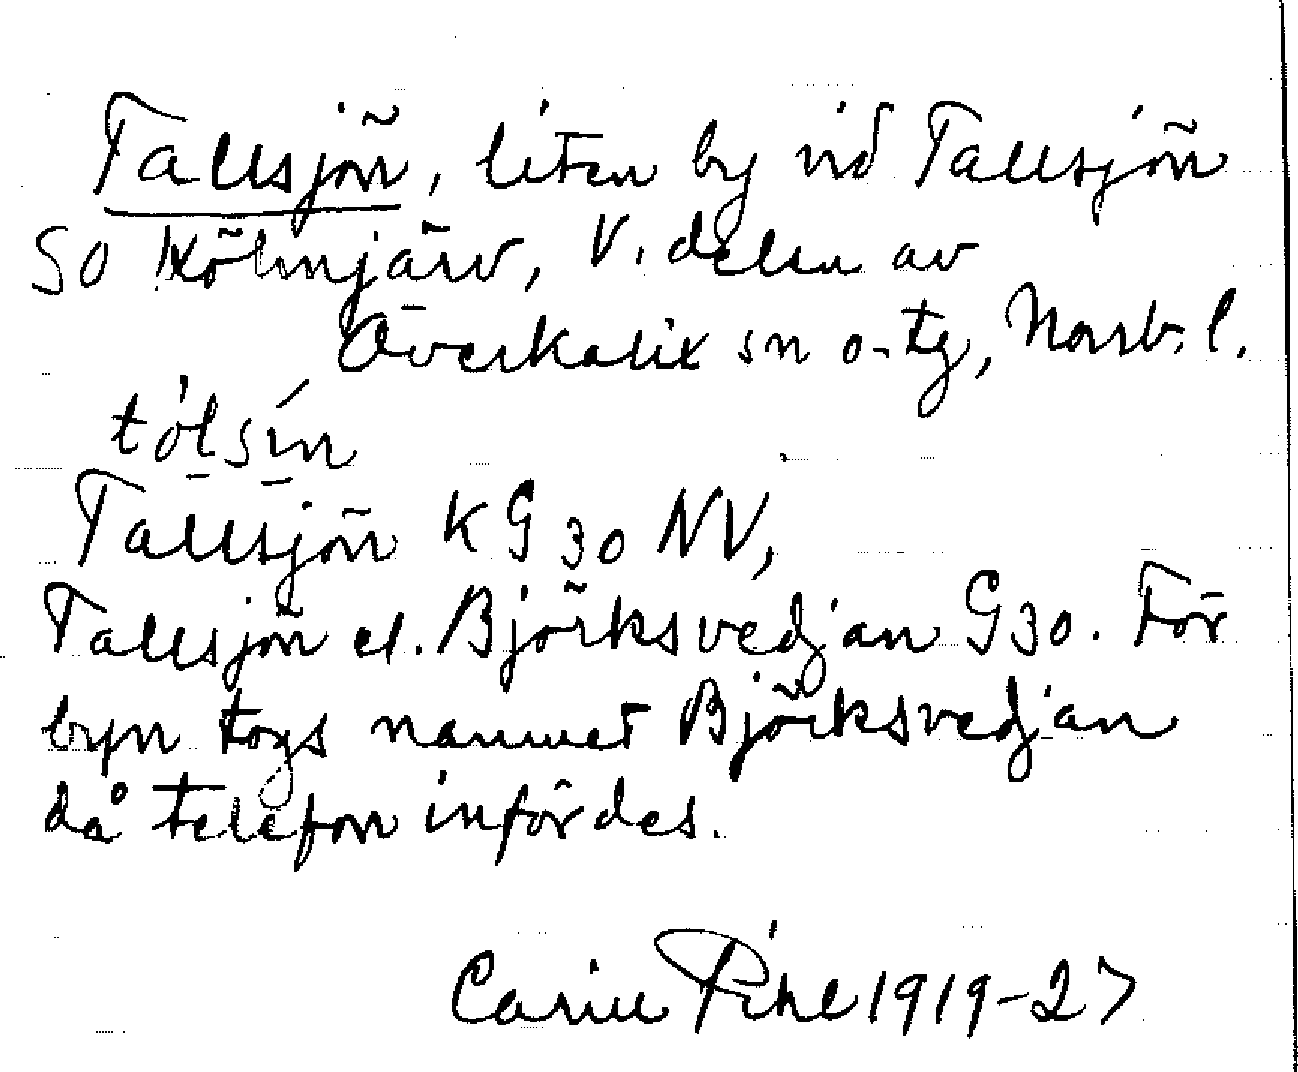 Tallsjön, liten by vid Tallsjön
SO Kölmjärv, V. delen av
Överkalix sn o. tg, Norrb. l.
tólsín
Tallsjön KG 30 NV,
Tallsjön el. Björksvedjan G30. För
byn togs namnet Björksvedjan
då telefon infördes.
Carin Pihl 1919-27